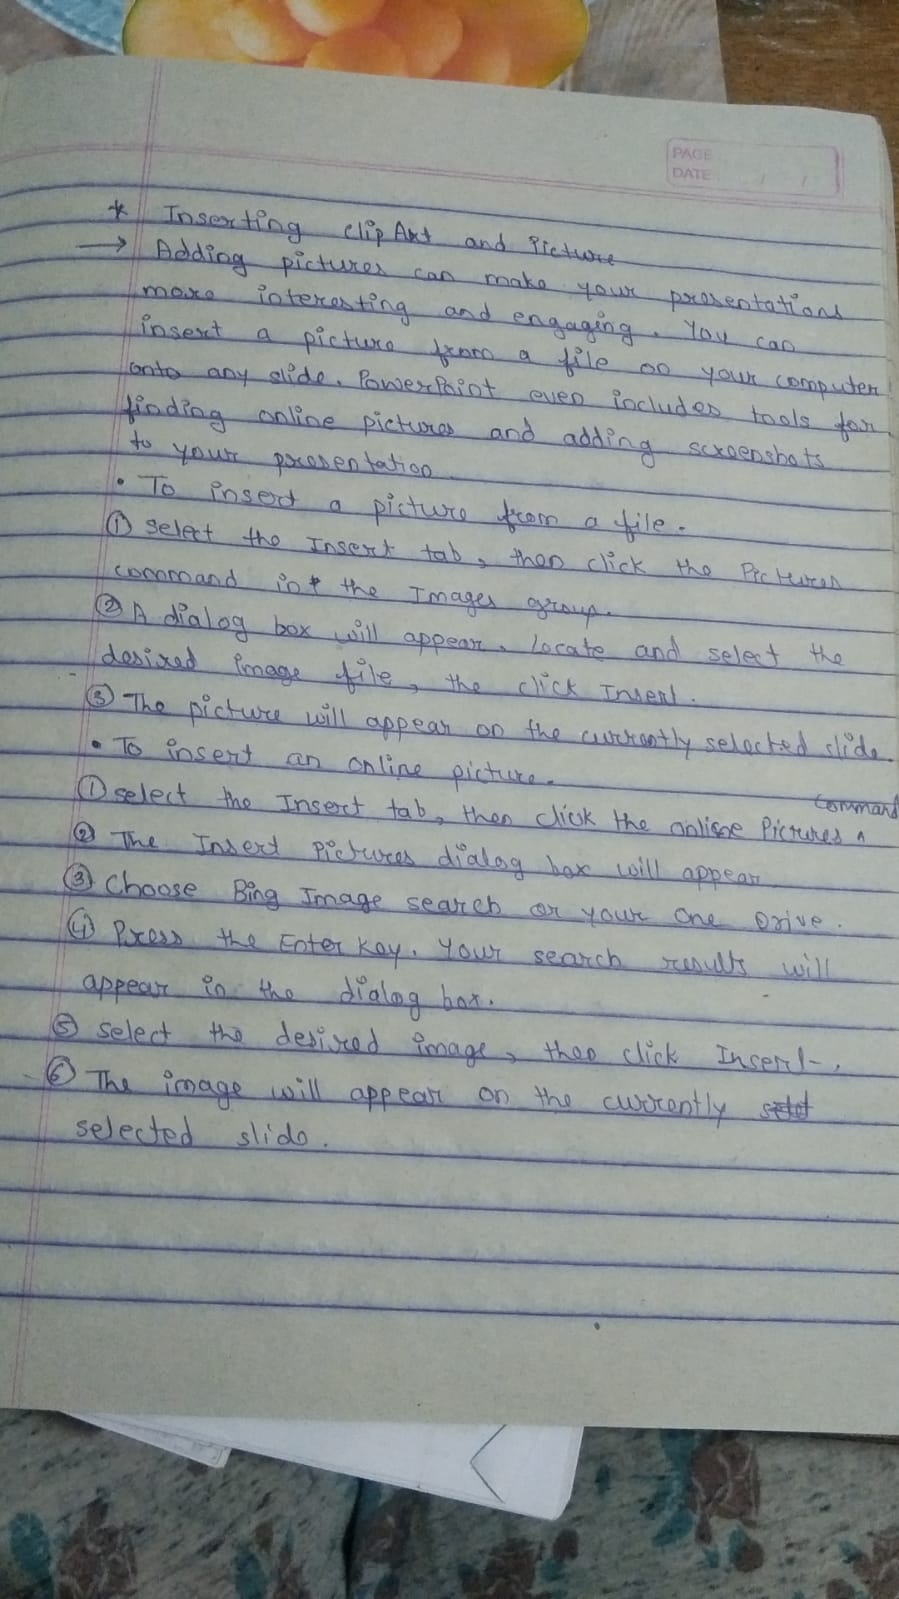 PAGE
DATE / /
* Inserting clipArt and Picture
→ Adding pictures can make your presentations
more interesting and engaging. You can
insert a picture from a file on your computer
onto any slide. PowerPoint even includes tools for
finding online pictures and adding screenshots
to your presentation
• To insert a picture from a file.
① select the Insert tab, then click the Pictures
command in the Images group.
② A dialog box will appear. Locate and select the
desired image file, the click Insert.
③ The picture will appear on the currently selected slide.
• To insert an online picture.
① select the Insert tab, then click the online Pictures ^ command
② The Insert Pictures dialog box will appear
③ Choose Bing Image search or your One Drive.
④ Press the Enter Key. Your search results will
appear in the dialog box.
⑤ select the desired image, then click Insert.
⑥ The image will appear on the currently
selected slide.